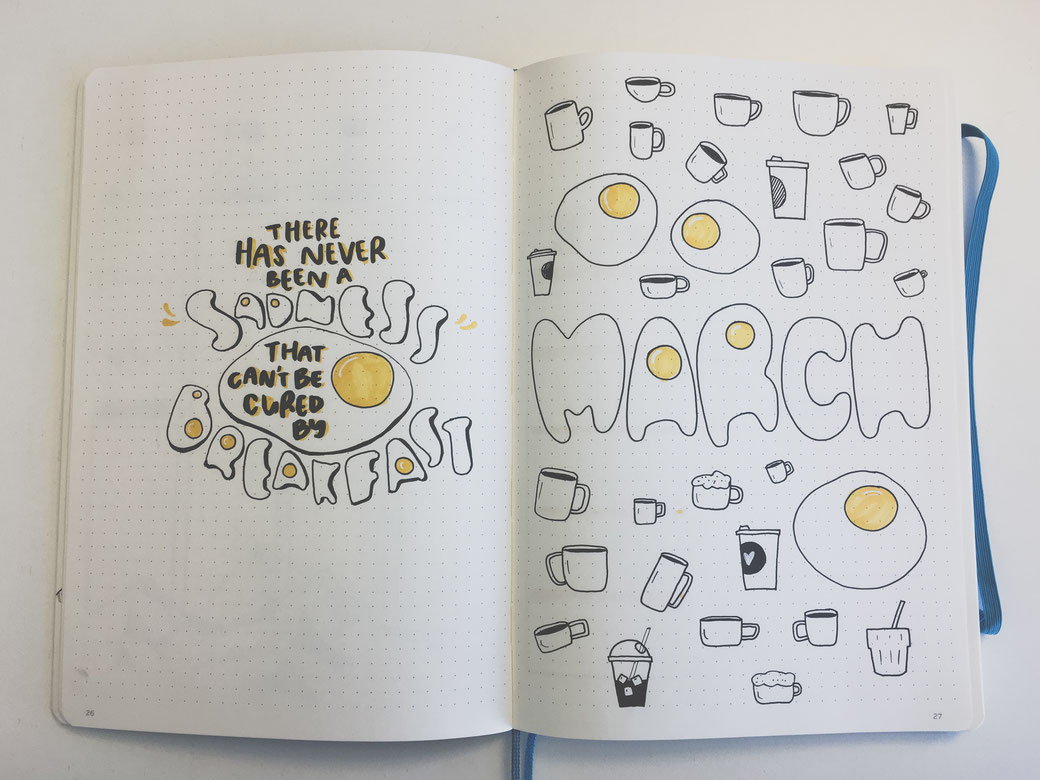 THERE
HAS NEVER
BEEN A
SADNESS
THAT
CAN'T BE
CURED
BY
BREAKFAST
26
MARCH
27